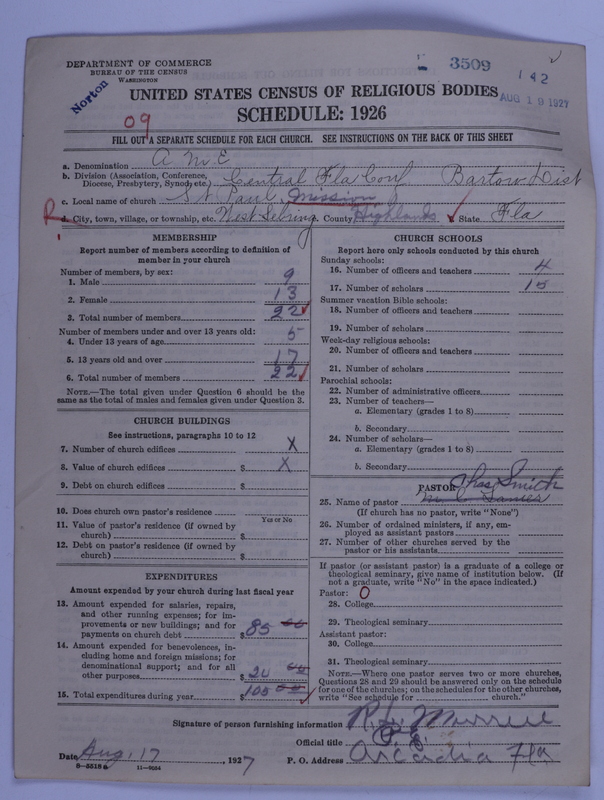 DEPARTMENT OF COMMERCE
BUREAU OF THE CENSUS
WASHINGTON
Norton
3509
142
AUG 19 1927
UNITED STATES CENSUS OF RELIGIOUS BODIES
SCHEDULE: 1926
09
FILL OUT A SEPARATE SCHEDULE FOR EACH CHURCH. SEE INSTRUCTIONS ON THE BACK OF THIS SHEET
a. Denomination A M E
b. Division (Association, Conference, Diocese, Presbytery, Synod, etc.) Central Fla Conf Bartow Dist
c. Local name of church St Paul Mission
R d. City, town, village, or township, etc. West Sebring County Highlands State Fla
MEMBERSHIP
Report number of members according to definition of
member in your church
Number of members, by sex:
1. Male 9
2. Female 13
3. Total number of members 22
Number of members under and over 13 years old:
4. Under 13 years of age 5
5. 13 years old and over 17
6. Total number of members 22
NOTE.—The total given under Question 6 should be
same as the total of males and females given under Question 3.
CHURCH BUILDINGS
See instructions, paragraphs 10 to 12
7. Number of church edifices X
8. Value of church edifices $ X
9. Debt on church edifices $
10. Does church own pastor's residence?
Yes or No
11. Value of pastor's residence (if owned by
church) $
12. Debt on pastor's residence (if owned by
church) $
EXPENDITURES
Amount expended by your church during last fiscal year
13. Amount expended for salaries, repairs,
and other running expenses; for im-
provements or new buildings; and for
payments on church debt $ 85 00
14. Amount expended for benevolences, in-
cluding home and foreign missions; for
denominational support; and for all
other purposes $ 20 00
15. Total expenditures during year $ 105 00
CHURCH SCHOOLS
Report here only schools conducted by this church
Sunday schools:
16. Number of officers and teachers 4
17. Number of scholars 15
Summer vacation Bible schools:
18. Number of officers and teachers
19. Number of scholars
Week-day religious schools:
20. Number of officers and teachers
21. Number of scholars
Parochial schools:
22. Number of administrative officers
23. Number of teachers—
a. Elementary (grades 1 to 8)
b. Secondary
24. Number of scholars—
a. Elementary (grades 1 to 8)
b. Secondary
PASTOR Chas Smith
25. Name of pastor
(If church has no pastor, write "None")
26. Number of ordained ministers, if any, em-
ployed as assistant pastors
27. Number of other churches served by the
pastor or his assistants
If pastor (or assistant pastor) is a graduate of a college or
theological seminary, give name of institution below. (If
not a graduate, write "No" in the space indicated.)
Pastor: O
28. College
29. Theological seminary
Assistant pastor:
30. College
31. Theological seminary
NOTE.—Where one pastor serves two or more churches,
Questions 28 and 29 should be answered only on the schedule
for one of the churches; on the schedules for the other churches,
write "See schedule for church."
Signature of person furnishing information
Official title P. E.
Date Aug, 17, 1927 P. O. Address Arcadia Fla
8-5518a 11-9034